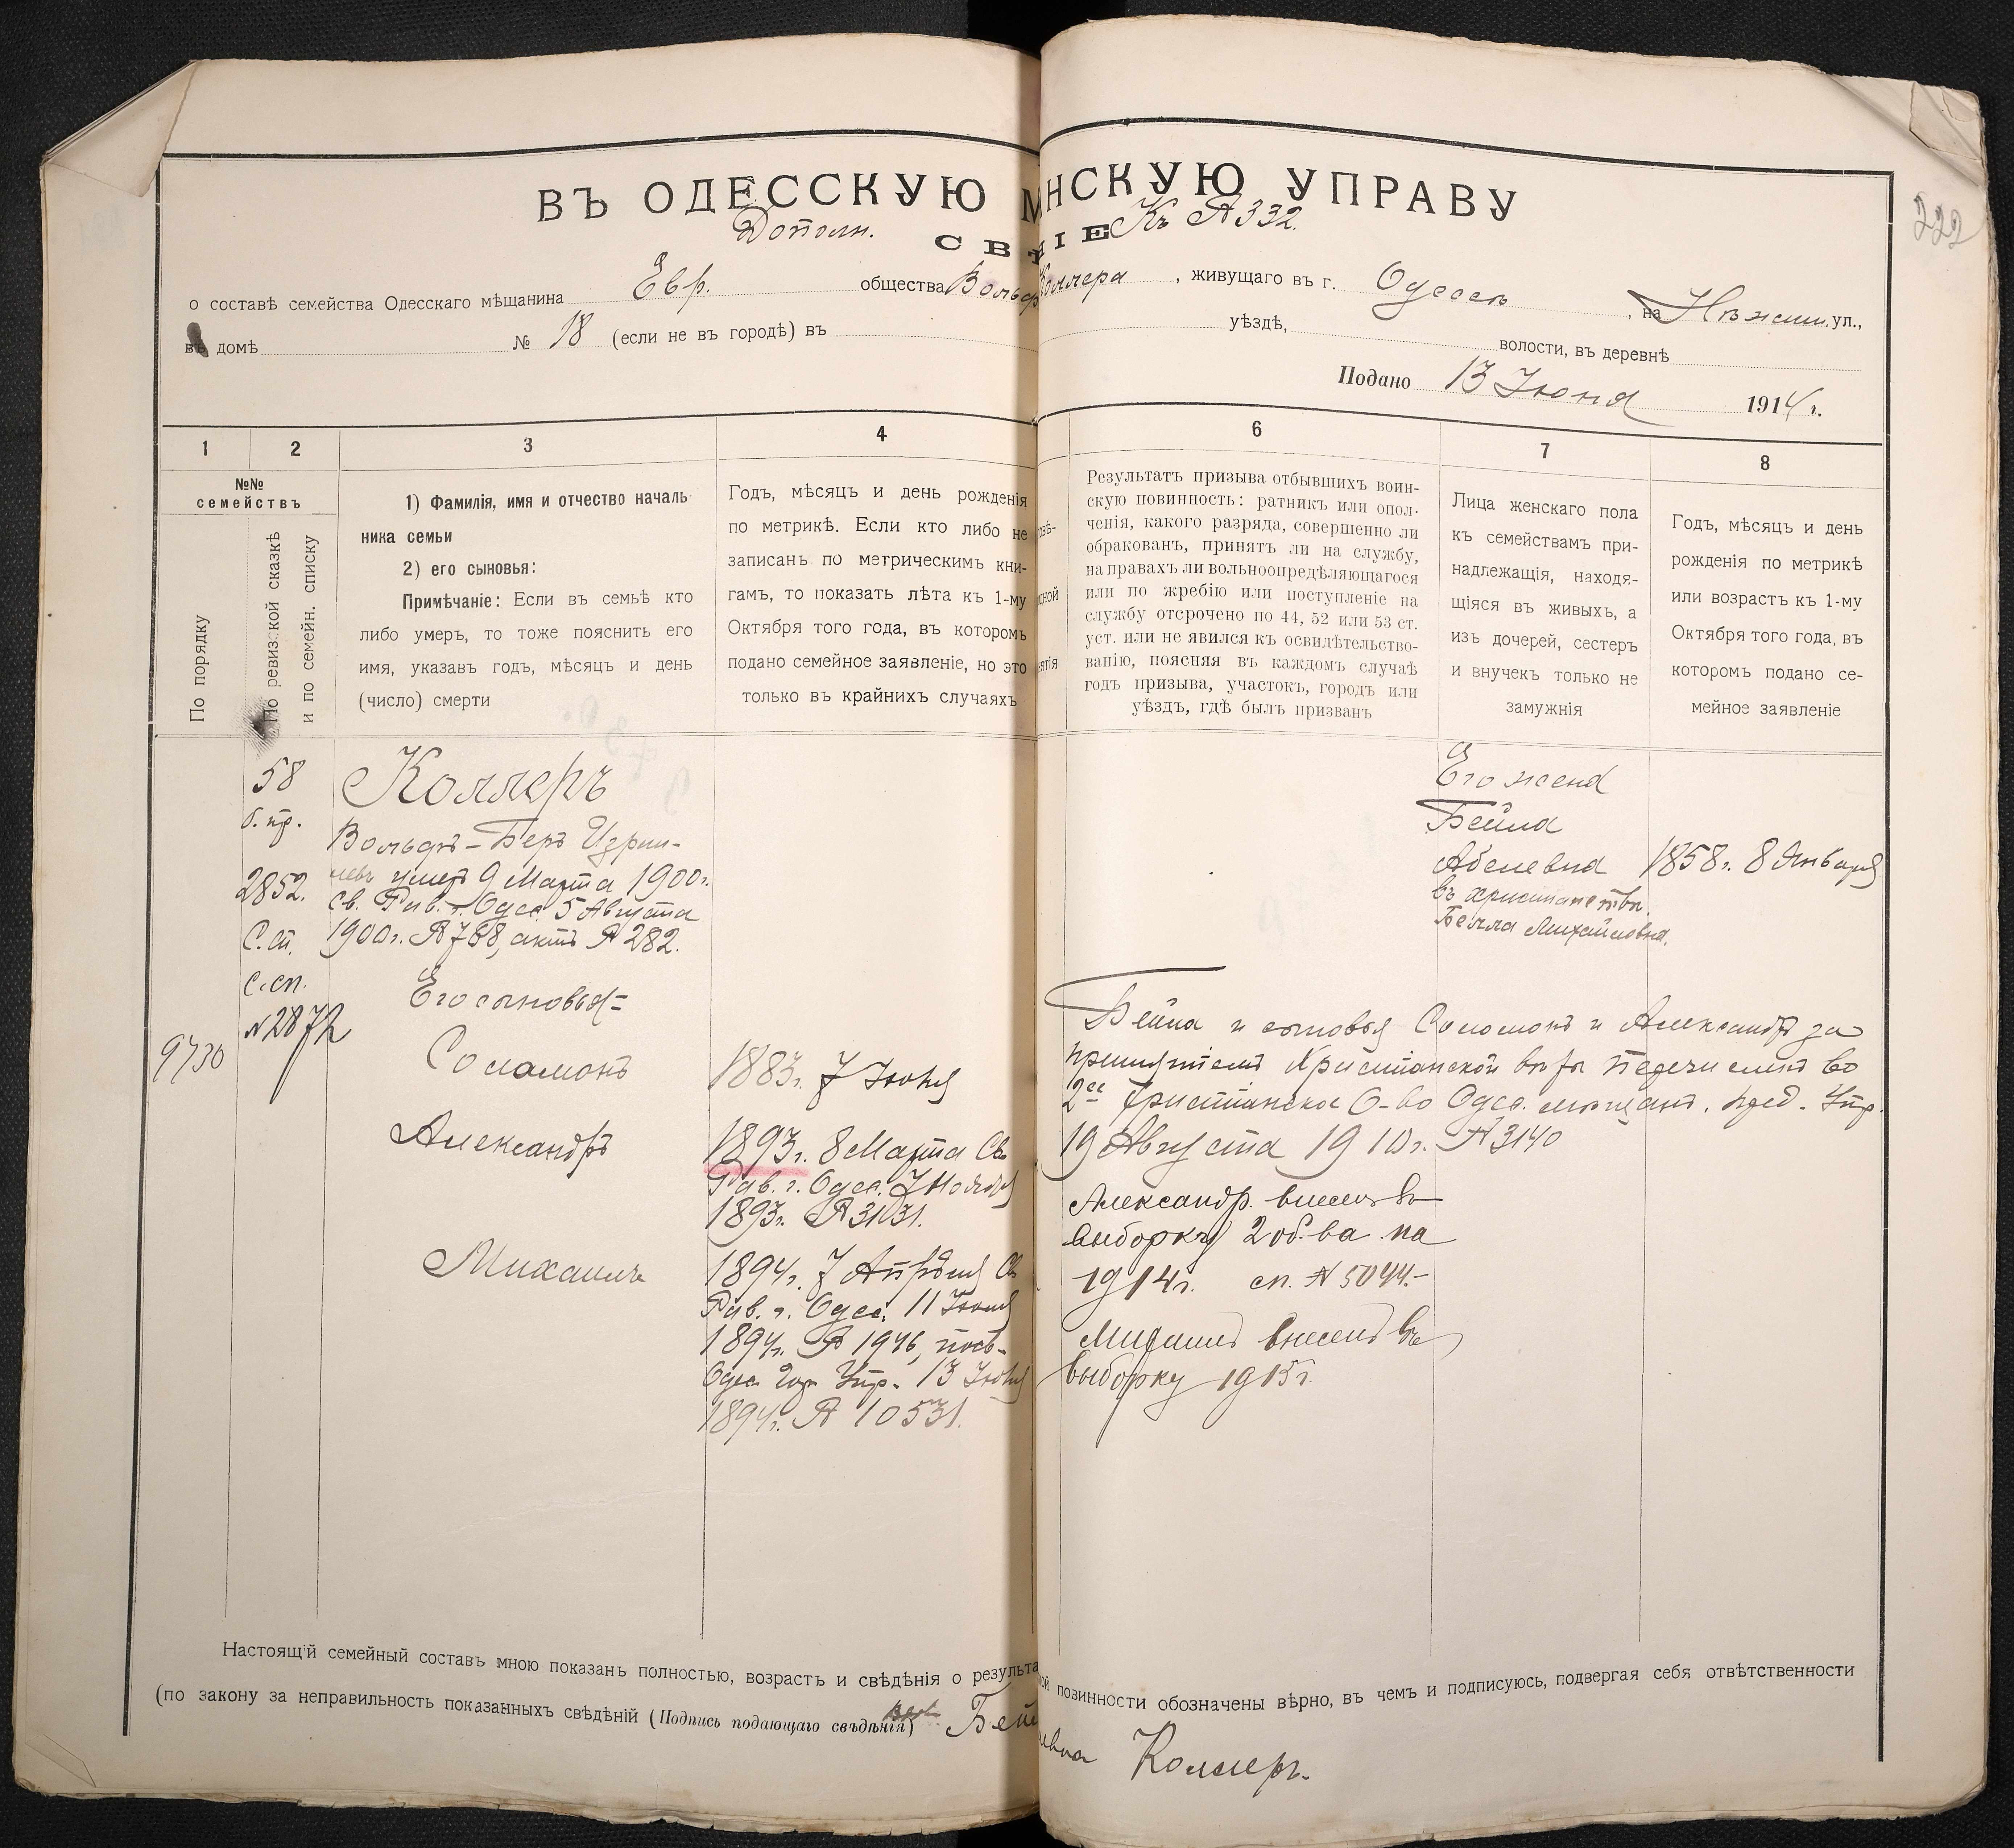 222
ВЪ ОДЕССКУЮ М НСКУЮ УПРАВУ
Дополн. СВ НІЕ Къ № 332.
о составѣ семейства Одесскаго мѣщанина Евр. общества Вольф Коллера, живущаго въ г. Одессѣ, на Нѣжин. ул.,
въ домѣ № 18 (если не въ городѣ) въ уѣздѣ, волости, въ деревнѣ
Подано 13 Іюня 1914 г.
1
2
3
4
6
7
8
№№
семействъ
По порядку
По ревизской сказкѣ
и по семейн. списку
1) Фамилія, имя и отчество началь-
ника семьи
2) его сыновья:
Примѣчаніе: Если въ семьѣ кто
либо умеръ, то тоже пояснить его
имя, указавъ годъ, мѣсяцъ и день
(число) смерти
Годъ, мѣсяцъ и день рожденія
по метрикѣ. Если кто либо не
записанъ по метрическимъ кни-
гамъ, то показать лѣта къ 1-му
Октября того года, въ которомъ
подано семейное заявленіе, но это
только въ крайнихъ случаяхъ
Результатъ призыва отбывшихъ воин-
скую повинность: ратникъ или опол-
ченія, какого разряда, совершенно ли
обракованъ, принятъ ли на службу,
на правахъ ли вольноопредѣляющагося
или по жребію или поступленіе на
службу отсрочено по 44, 52 или 53 ст.
уст. или не явился къ освидѣтельство-
ванію, поясняя въ каждомъ случаѣ
годъ призыва, участокъ, городъ или
уѣздъ, гдѣ былъ призванъ
Лица женскаго пола
къ семействамъ при-
надлежащія, находя-
щіяся въ живыхъ, а
изъ дочерей, сестеръ
и внучекъ только не
замужнія
Годъ, мѣсяцъ и день
рожденія по метрикѣ
или возрастъ къ 1-му
Октября того года, въ
которомъ подано се-
мейное заявленіе
58
б. пр.
2852.
С. т.
с. сп.
№ 2872
9730
Коллеръ
Вольфъ-Беръ Изрои-
левъ умеръ 9 Марта 1900 г.
св. Рав. г. Одес. 5 Августа
1900 г. № 768, актъ № 282.
Его сыновья=
Соломонъ
1883 г. 7 Іюня
Александръ
1893 г. 8 Марта Св.
Рав. г. Одес. 7 Ноября
1893 г. № 3131.
Михаилъ
1894 г. 7 Апрѣля Св.
Рав. г. Одес. 11 Іюня
1894 г. № 1946, посв-
Одес. Гор. Упр. 13 Іюня
1894 г. № 10531.
Его жена
Бейла
Абелевна 1858 г. 8 Января
въ христіанствѣ
Белла Михайловна.
Бейла и сыновья Соломонъ и Александръ за
принятіемъ Христіанской вѣры перечислены во
2ое Христіанское О-во Одес. мѣщанъ. пред. Упр.
19 Августа 1910 г. № 3140
Александр. внесенъ въ
выборку 2 об-ва на
1914 г. сп. № 5044.-
Михаилъ внесенъ въ
выборку 1915 г.
Настоящій семейный составъ мною показанъ полностью, возрастъ и свѣдѣнія о результа ой повинности обозначены вѣрно, въ чемъ и подписуюсь, подвергая себя отвѣтственности
(по закону за неправильность показанныхъ свѣдѣній (Подпись подающаго свѣдѣнія) Бей евна Коллеръ.